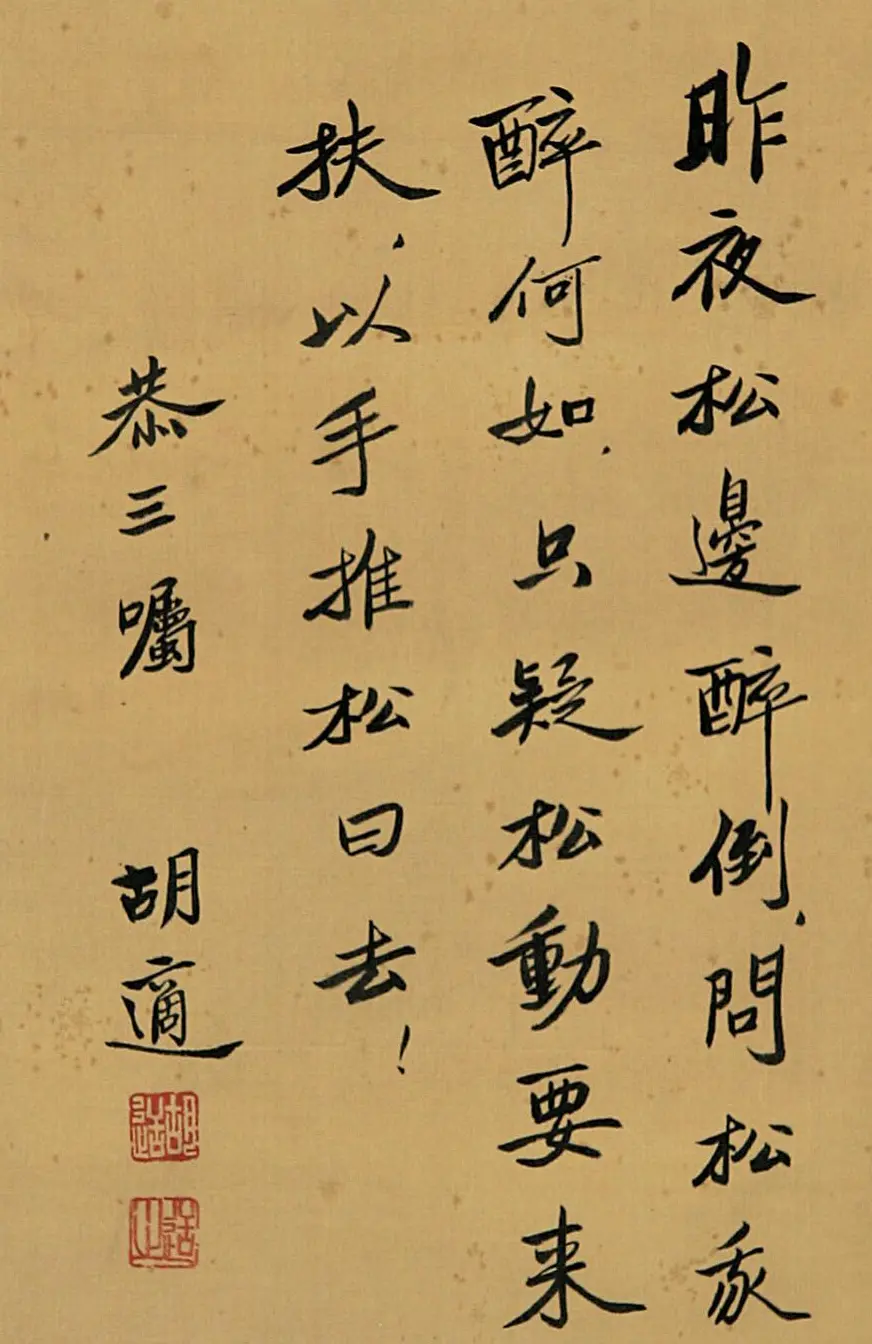 昨夜松邊醉倒，問松我
醉何如，只疑松動要来
扶，以手推松曰去！
恭三囑 胡適
胡适
适之